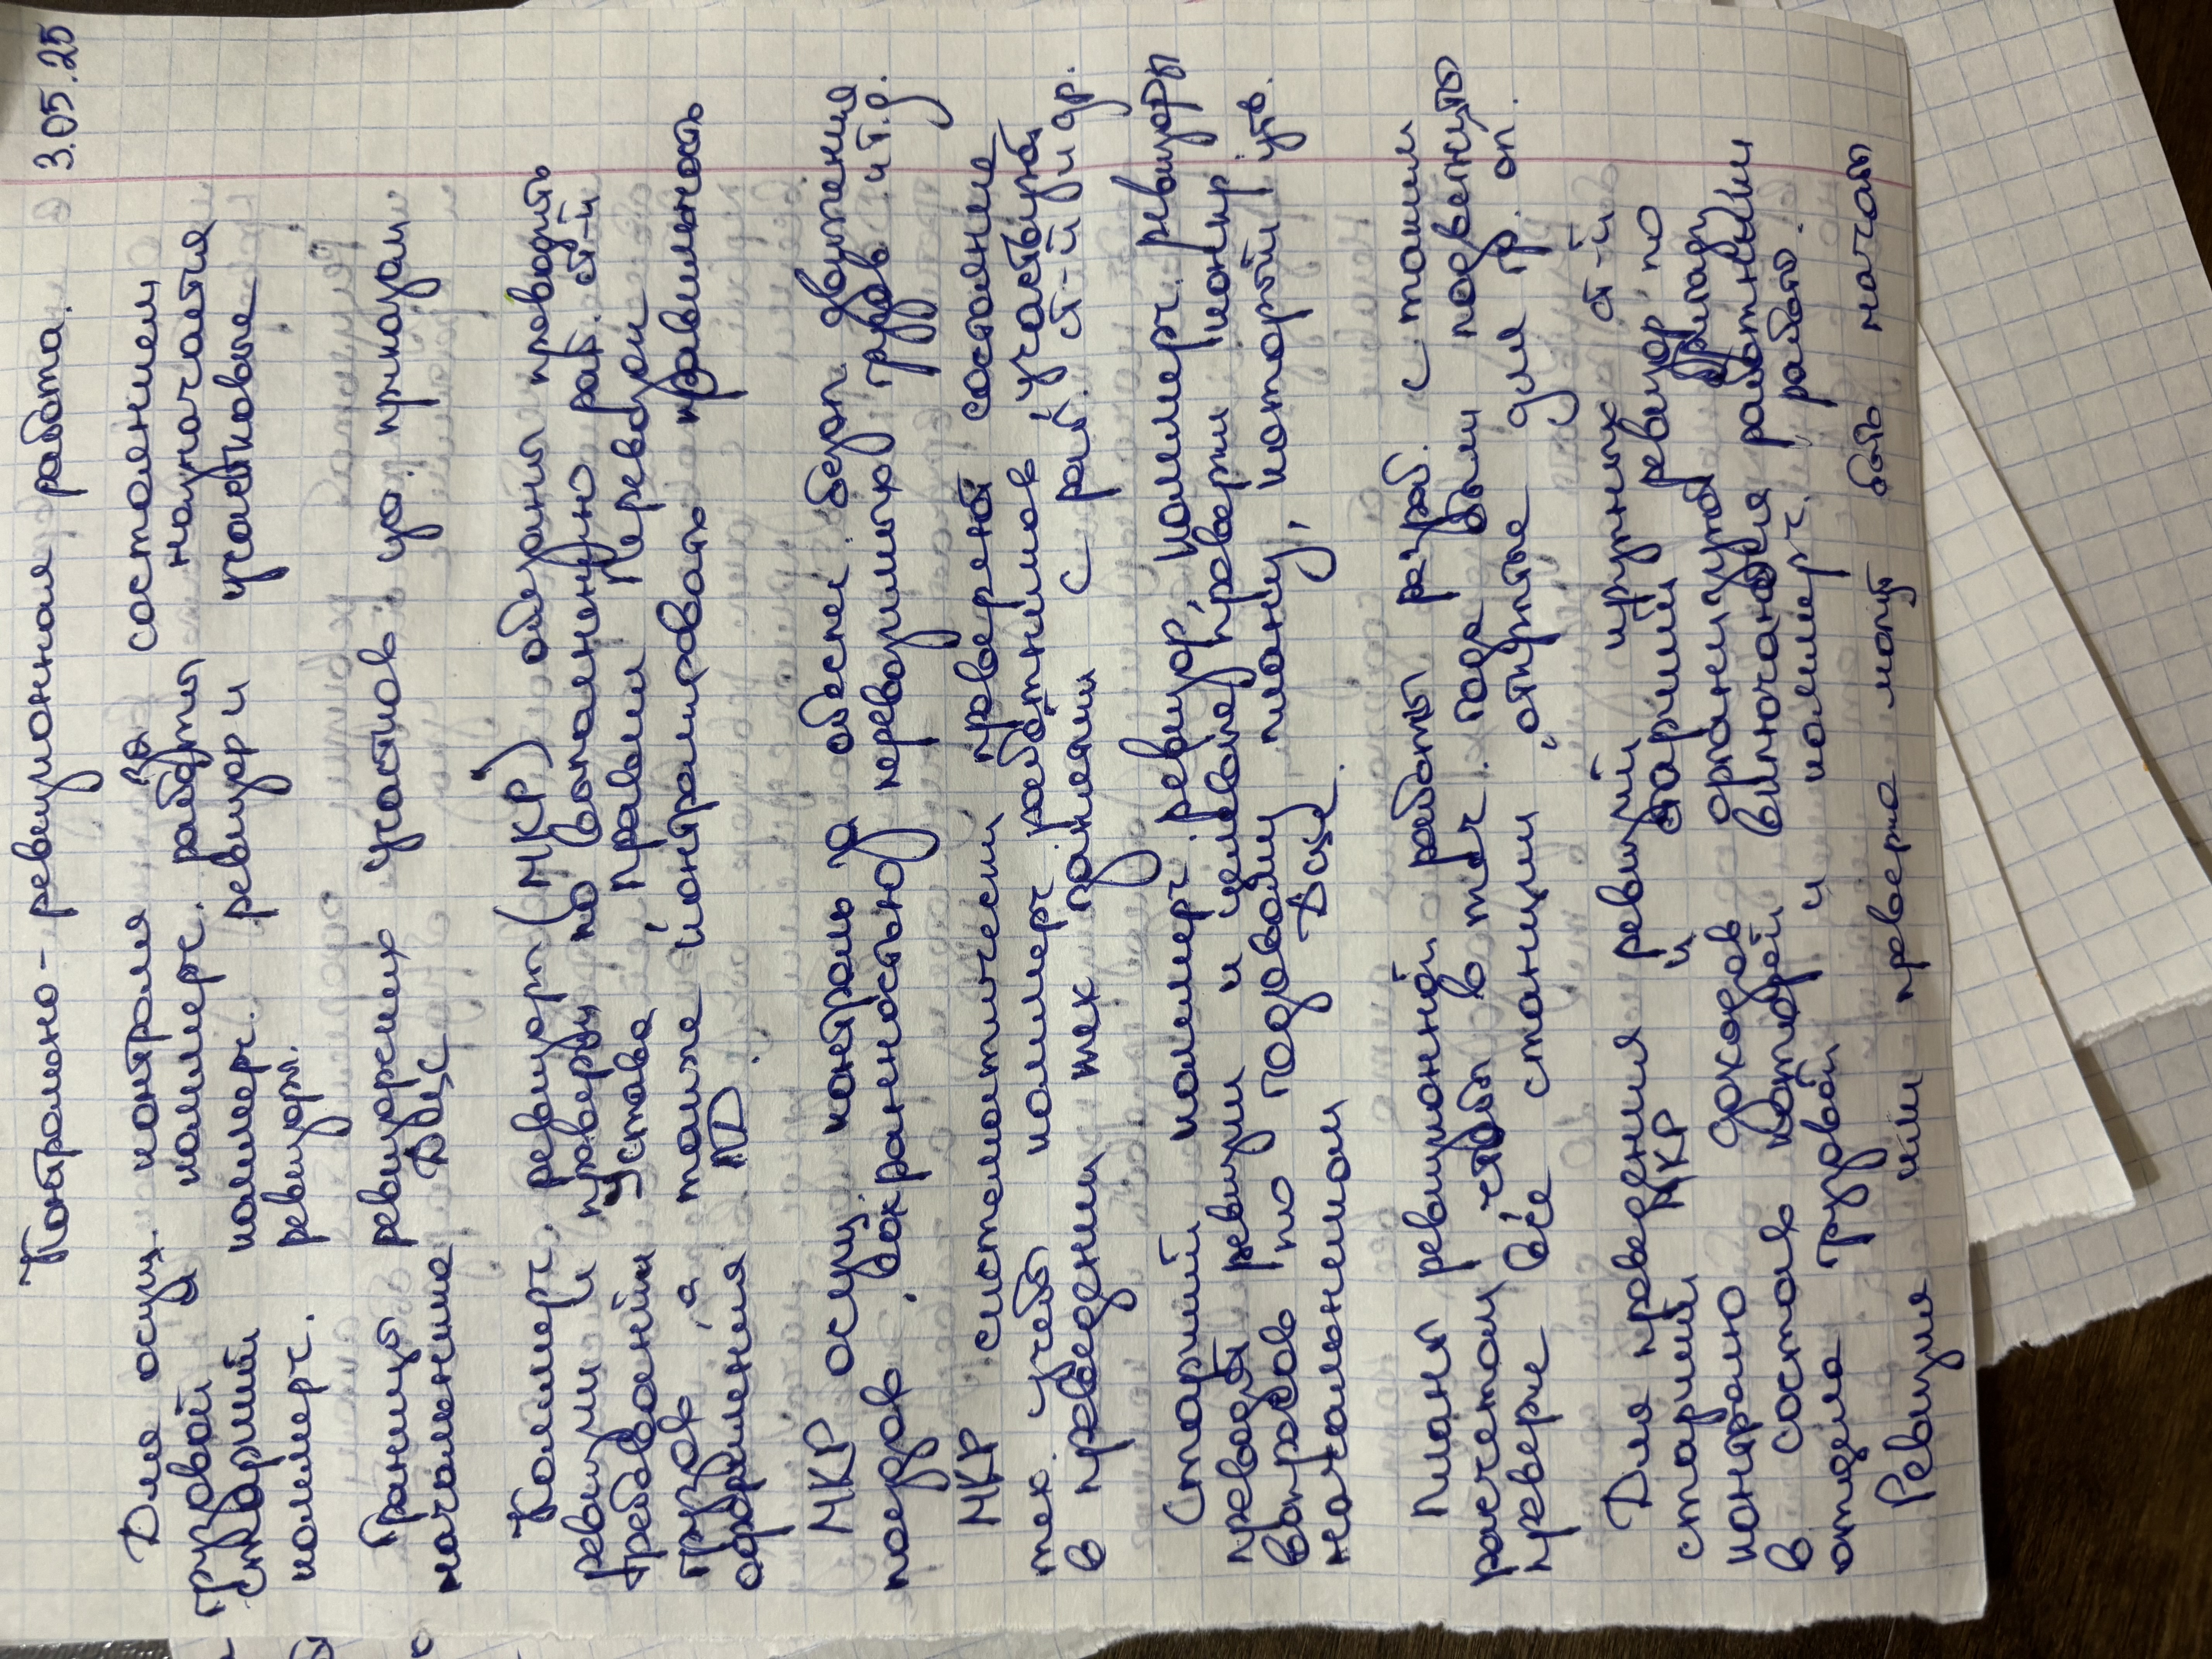 3.05.25
Контрольно - ревизионная работа.
Для осущ. контроля за состоянием
грузовой и коммерч. работы назначается
старший коммерч. ревизор и участковые
коммерч. ревизоры.
Границы ревизорских участков уст. приказом
начальника ДЦС
Коммерч. ревизоры (МКР) обязаны проводить
ревизии и проверки по выполнению раб. ст-й
требований Устава, Правил перевозки
грузов, а также контролировать правильность
оформления ПД.
МКР осущ. контроль за обеспеч. безоп. движения
поездов, сохранностью перевозимых грузов и т.д.
МКР систематически проверяют состояние
тех. учебы коммерч. работников, участвуют
в проведении тех занятий с раб. ст-й и др.
Старший коммерч. ревизор, коммерч. ревизоры
проводят ревизии и целевые проверки концир.
вопросов по годовому плану, который утв.
начальником ДЦС.
План ревизионной работы разраб. с таким
расчетом чтобы в теч. года были подвергнуты
проверке все станции, открытые для гр. оп.
Для проведения ревизий крупных ст-й
старший МКР и старший ревизор по
контролю доходов организуют бригаду
в состав которой включаются работники
отдела грузовой и коммерч. работы.
Ревизия или проверка могут быть начаты